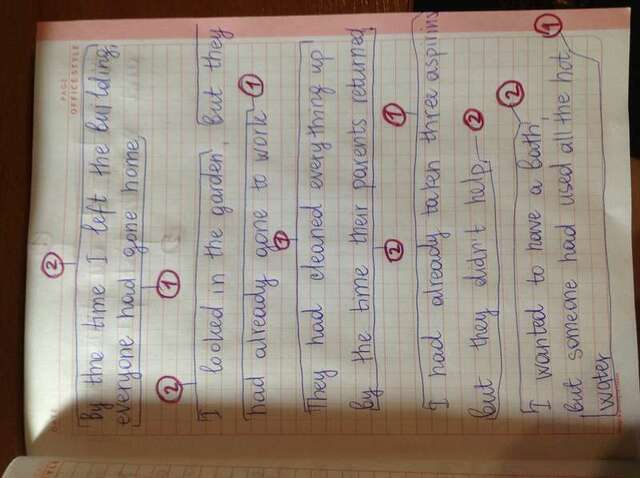 PAGE
OFFICE STYLE
②
By the time I left the building,
everyone had gone home.
①
②
I looked in the garden, but they
had already gone to work ①
①
They had cleaned everything up
by the time their parents returned
②
①
I had already taken three aspirins
but they didn't help. ②
②
①
I wanted to have a bath,
but someone had used all the hot
water